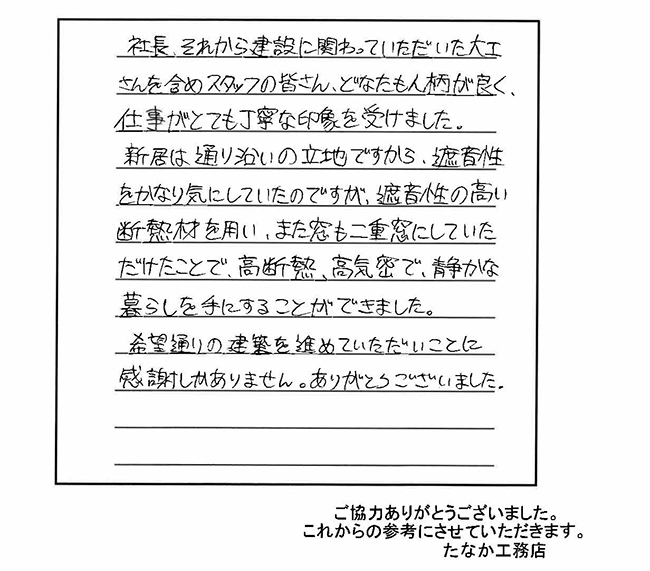 社長、それから建設に関わっていただいた大工
さんを含めスタッフの皆さん、どなたも人柄が良く、
仕事がとても丁寧な印象を受けました。
新居は通り沿いの立地ですから、遮音性
をかなり気にしていたのですが、遮音性の高い
断熱材を用い、また窓も二重窓にしていた
だけたことで、高断熱、高気密で、静かな
暮らしを手にすることができました。
希望通りの建築を進めていただいことに
感謝しかありません。ありがとうございました。
ご協力ありがとうございました。
これからの参考にさせていただきます。
たなか工務店